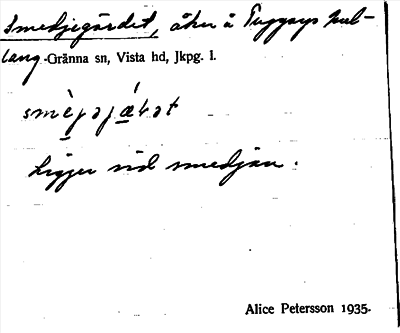 Smedjegärdet, åker å
lang-Gränna sn, Vista hd, Jkpg. l.
Ligger vid smedjan.
Alice Petersson 1935.